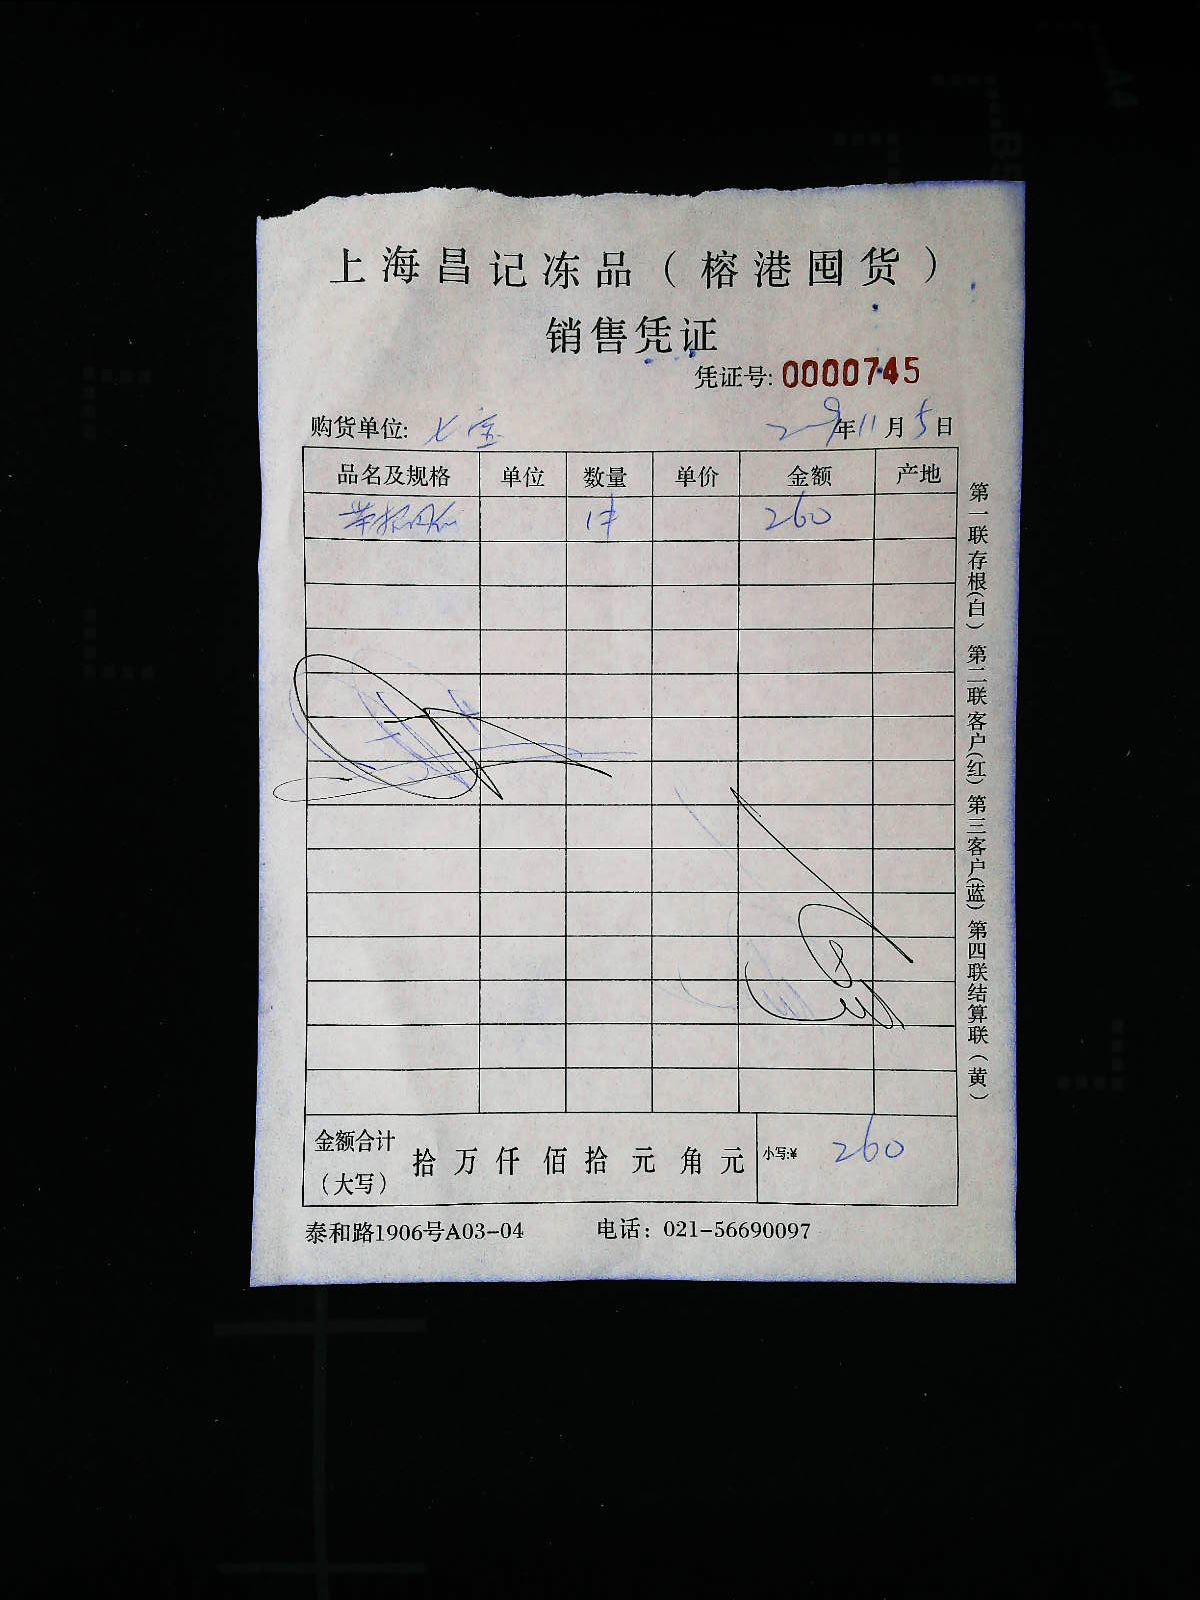 上海昌记冻品（榕港囤货）
销售凭证
凭证号: 0000745
购货单位: 七宝 年11月5日
品名及规格 单位 数量 单价 金额 产地
1件 260
金额合计（大写） 拾 万 仟 佰 拾 元 角 元 小写:¥ 260
泰和路1906号A03-04 电话：021-56690097
第一联存根（白）第二联客户（红）第三客户（蓝）第四联结算联（黄）